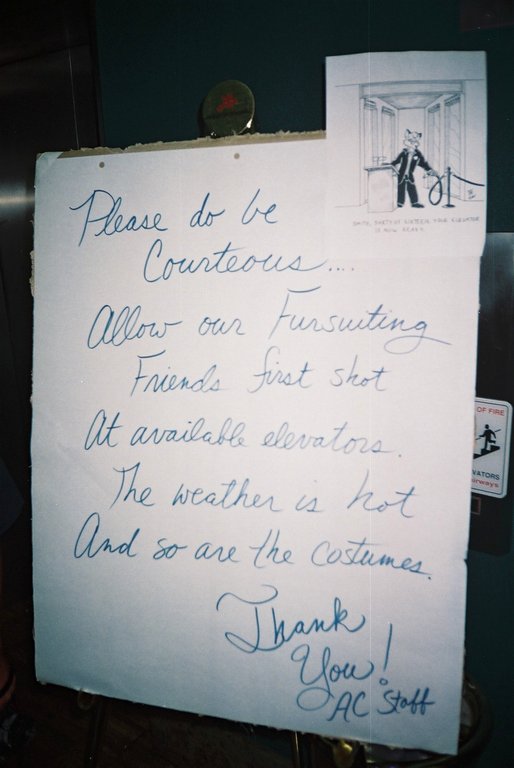 Please do be
Courteous....
Allow our Fursuiting
Friends first shot
At available elevators.
The weather is hot
And so are the costumes.
Thank
You!
AC Staff
SMITH, PARTY OF SIXTEEN, YOUR ELEVATOR
IS NOW READY.
OF FIRE
VATORS